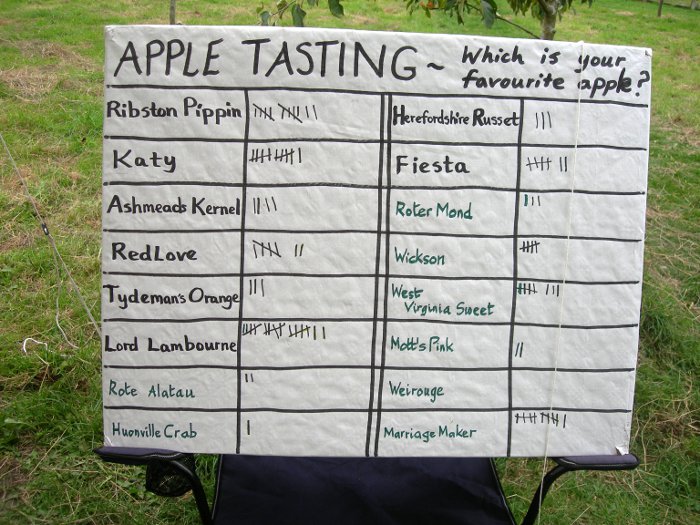 APPLE TASTING ~ Which is your
favourite apple?
Ribston Pippin
Herefordshire Russet
Katy
Fiesta
Ashmeads Kernel
Roter Mond
RedLove
Wickson
Tydeman's Orange
West
Virginia Sweet
Lord Lambourne
Mott's Pink
Rote Alatau
Weirouge
Huonville Crab
Marriage Maker